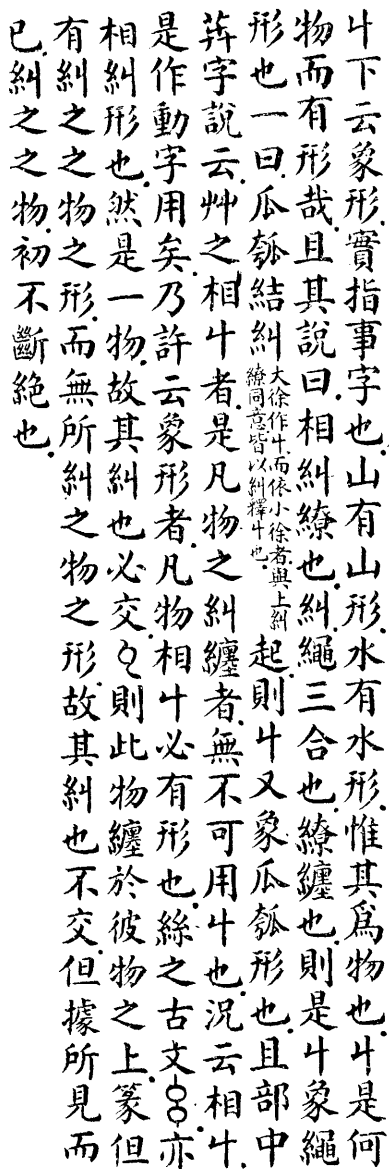 丩下云象形。實指事字也。山有山形。水有水形。惟其爲物也。丩是何
物而有形哉。且其說曰。相糾繚也。糾。繩三合也。繚。纏也。則是丩象繩
形也。一曰。瓜瓠結糾
大徐作丩。而依小徐者。與上糾
繚同意。皆以糾釋丩也。
起。則丩又象瓜瓠形也。且部中
字說云。艸之相丩者。是凡物之糾纏者。無不可用丩也。況云相丩。
是作動字用矣。乃許云象形者。凡物相丩。必有形也。絲之古文亦
相糾形也。然是一物。故其糾也必交。則此物纏於彼物之上。篆但
有糾之之物之形。而無所糾之物之形。故其糾也不交。但據所見而
已。糾之之物。初不斷絕也。